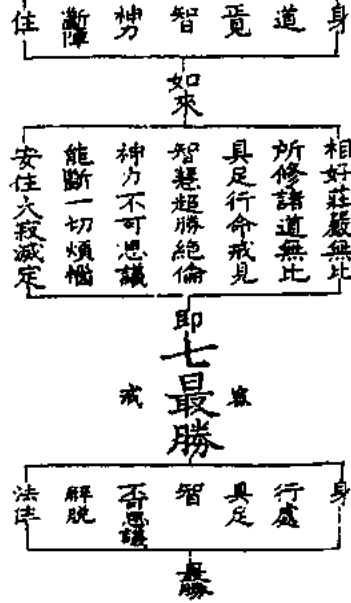 身
道
正見
智
神力
斷障
住
如來
相好莊嚴無比
所修諸道無比
具足行命戒見
智慧超勝絕倫
神力不可思議
能斷一切煩惱
安住大寂滅定
即
七最勝
身
行處
具足
智
不可思議
解脫
法住
最勝